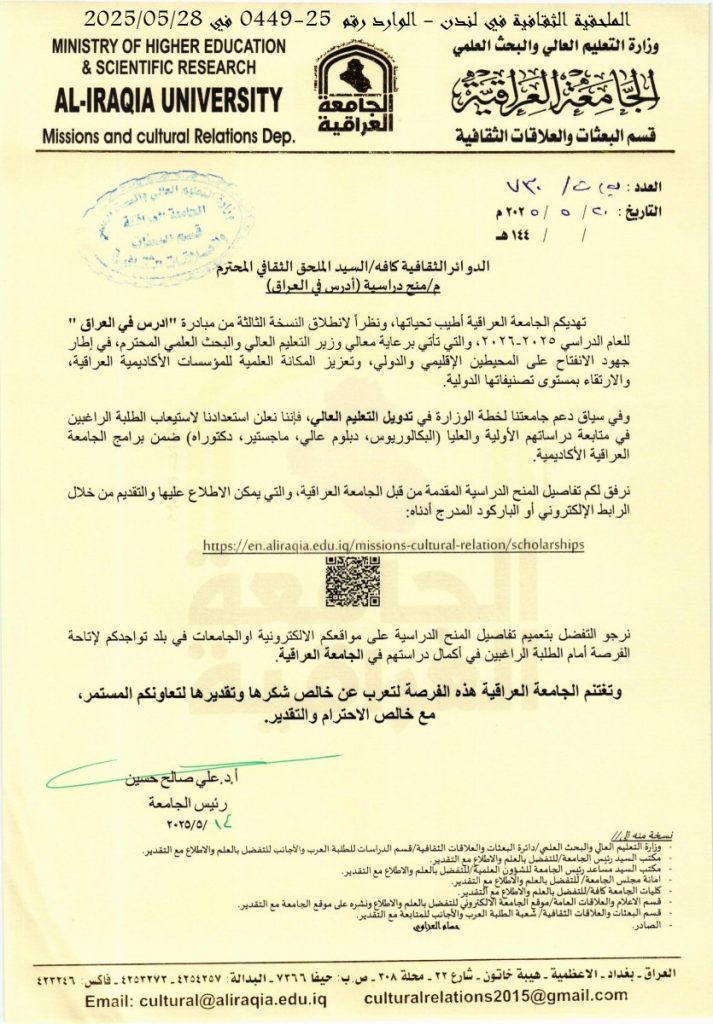 الملحقية الثقافية في لندن - الوارد رقم 25-0449 في 2025/05/28
MINISTRY OF HIGHER EDUCATION
& SCIENTIFIC RESEARCH
AL-IRAQIA UNIVERSITY
Missions and cultural Relations Dep.
AL-IRAQIA UNIVERSITY
الجامعة
العراقية
وزارة التعليم العالي والبحث العلمي
الجامعة العراقية
قسم البعثات والعلاقات الثقافية
العدد : ب ت / ٧٣٠
التاريخ : ٢٠ / ٥ / ٢٠٢٥ م
/ / ١٤٤ هـ
وزارة التعليم العالي والبحث العلمي
الجامعة العراقية
قسم البعثات
والعلاقات الثقافية
الدوائر الثقافية كافه/السيد الملحق الثقافي المحترم
م/منح دراسية (أدرس في العراق)
تهديكم الجامعة العراقية أطيب تحياتها، ونظراً لانطلاق النسخة الثالثة من مبادرة "ادرس في العراق "
للعام الدراسي ٢٠٢٥-٢٠٢٦، والتي تأتي برعاية معالي وزير التعليم العالي والبحث العلمي المحترم، في إطار
جهود الانفتاح على المحيطين الإقليمي والدولي، وتعزيز المكانة العلمية للمؤسسات الأكاديمية العراقية،
والارتقاء بمستوى تصنيفاتها الدولية.
وفي سياق دعم جامعتنا لخطة الوزارة في تدويل التعليم العالي، فإننا نعلن استعدادنا لاستيعاب الطلبة الراغبين
في متابعة دراساتهم الأولية والعليا (البكالوريوس، دبلوم عالي، ماجستير، دكتوراه) ضمن برامج الجامعة
العراقية الأكاديمية.
نرفق لكم تفاصيل المنح الدراسية المقدمة من قبل الجامعة العراقية، والتي يمكن الاطلاع عليها والتقديم من خلال
الرابط الإلكتروني أو الباركود المدرج أدناه:
https://en.aliraqia.edu.iq/missions-cultural-relation/scholarships
نرجو التفضل بتعميم تفاصيل المنح الدراسية على مواقعكم الالكترونية اوالجامعات في بلد تواجدكم لإتاحة
الفرصة أمام الطلبة الراغبين في أكمال دراستهم في الجامعة العراقية.
وتغتنم الجامعة العراقية هذه الفرصة لتعرب عن خالص شكرها وتقديرها لتعاونكم المستمر،
مع خالص الاحترام والتقدير.
أ.د.علي صالح حسين
رئيس الجامعة
١٤ /٢٠٢٥/٥
نسخة منه الى//
- وزارة التعليم العالي والبحث العلمي/دائرة البعثات والعلاقات الثقافية/قسم الدراسات للطلبة العرب والأجانب للتفضل بالعلم والاطلاع مع التقدير.
- مكتب السيد رئيس الجامعة/للتفضل بالعلم والاطلاع مع التقدير.
- مكتب السيد مساعد رئيس الجامعة للشؤون العلمية/للتفضل بالعلم والاطلاع مع التقدير.
- امانة مجلس الجامعة/ للتفضل بالعلم والاطلاع مع التقدير.
- كليات الجامعة كافة/للتفضل بالعلم والاطلاع مع التقدير.
- قسم الاعلام والعلاقات العامة/موقع الجامعة الالكتروني للتفضل بالعلم والاطلاع ونشره على موقع الجامعة مع التقدير.
- قسم البعثات والعلاقات الثقافية/ شعبة الطلبة العرب والأجانب للمتابعة مع التقدير.
- الصادر. حسام العزاوي
العراق ـ بغداد ـ الاعظمية ـ هيبة خاتون ـ شارع ٢٢ ـ محلة ٣٠٨ ـ ص.ب: حيفا ٧٣٦٦ ـ البدالة: ٤٢٥٤٢٥٧ ـ ٤٢٥٣٢٧٢ ـ فاكس: ٤٢٣٢٤٦
Email: cultural@aliraqia.edu.iq culturalrelations2015@gmail.com